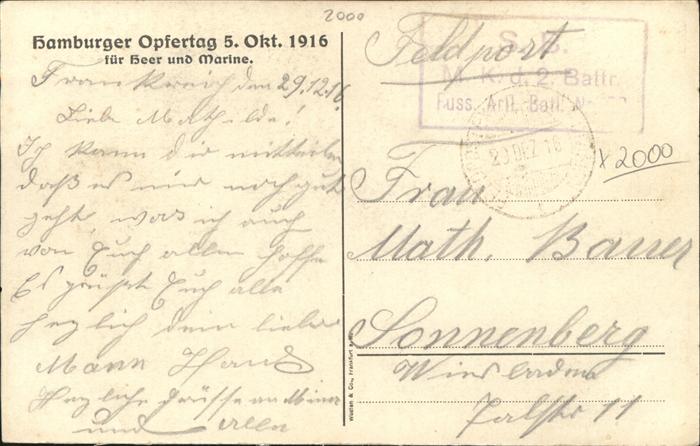 2000
Hamburger Opfertag 5. Okt. 1916
für Heer und Marine.
Frankreich den 29.12.16
Liebe Mathilde!
Ich kann dir mitteilen
daß es mir noch gut
geht, was ich auch
von Euch allen hoffe
Es grüßt Euch alle
herzlich dein lieber
Mann
Herzliche Grüsse an
und alle
Feldpost
S. B.
M. K. d. 2. Battr.
Fuss. Artl. Batl. No
DEZ 16
x 2000
Frau
Math. Bauer
Sonnenberg
Wiesbaden
Talstr 11